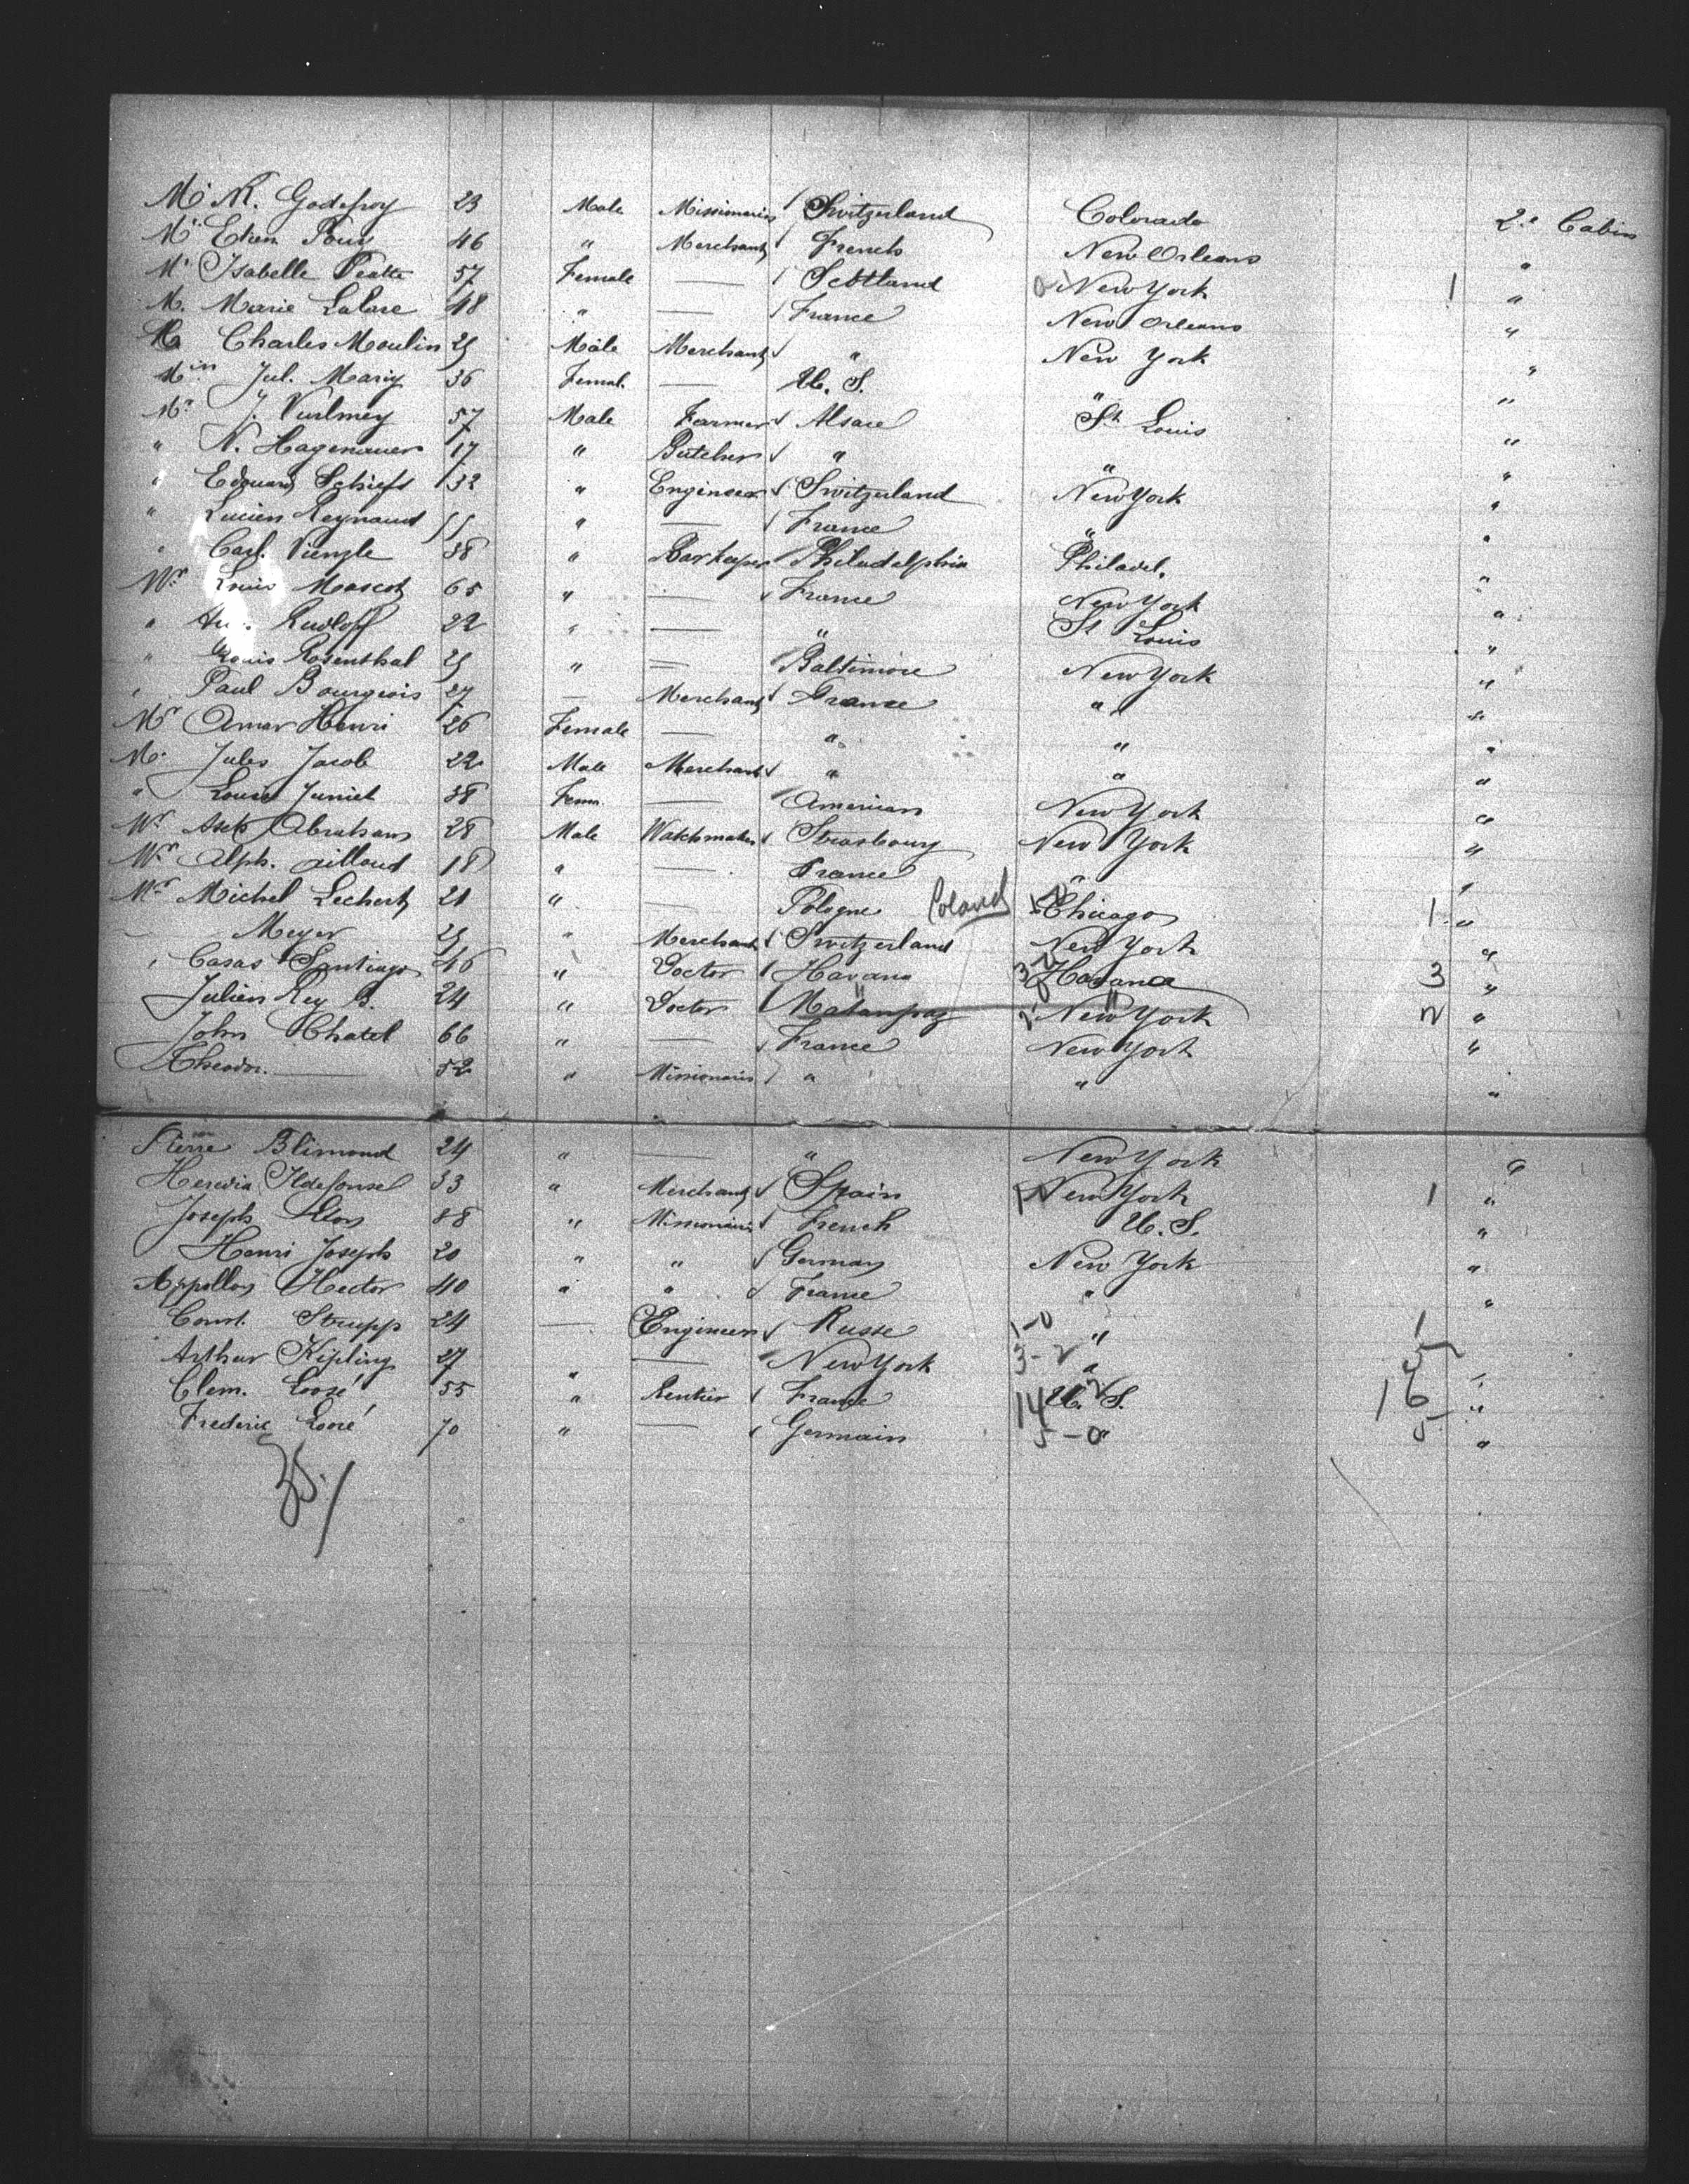 Mr N. Godefroy 23 Male Missionaris Switzerland Colorado 2e Cabin
Mr Etien Pouy 46 " Merchant French New Orleans "
Mr Isabelle 57 Female — Scottland New York 1 "
M. Marie LaLare 48 " — France New Orleans "
Charles Moulin 25 Male Merchant " New York "
Jul. Mariy 36 Femal. — U. S. " "
Mr J. Vurlmey 57 Male Farmer Alsace St Louis "
" N. Hagenauer 17 " Butcher " " "
" Edouard Schieft 32 " Engineer Switzerland New York "
" Lucien Reynaud " — France " "
" Carl. 38 " Barkeeper Philadelphia Philadel. "
Mr Louis Mascot 65 " — France New York "
" Rudloff 22 " — " St Louis "
" Louis Rosenthal 25 " — Baltimore New York "
" Paul Bourgeois 27 — Merchant France " "
Mr Amar Henri 26 Female — " " "
Mr Jules Jacob 22 Male Merchant " " "
" Louise Juniet 38 Fem. — American New York "
Mr Abraham 28 Male Watchmaker Strasbourg New York "
Mr Alph. Aillaud 18 " — France " "
Mr Michel Lechert 21 " — Pologne Poland Chicago 1 "
— Meyer 25 " Merchant Switzerland New York "
" Casas Santiago 46 " Doctor Havana Havana 3 "
Julien Rey B. 24 " Doctor " New York 2 "
John Chatel 66 " — France New York "
Theodor. — 52 " Missionaris " " "
Pierre Blimond 24 " — " New York "
Heredia Ildefonsel 33 " Merchant Spain New York 1 "
Joseph 38 " Missionaris French U. S. "
Henri Joseph 20 " " German New York "
Appollon Hector 40 " " France " "
Const. Strupp 24 — Engineer Russe 1-0 " 1
Arthur Kipling 27 " — New York 3-2 " 5 "
Clem. Loosé 55 " Rentier France 14 U. S. 16 "
Frederic Loosé 70 " — Germain 5-0 " 5 "
35/